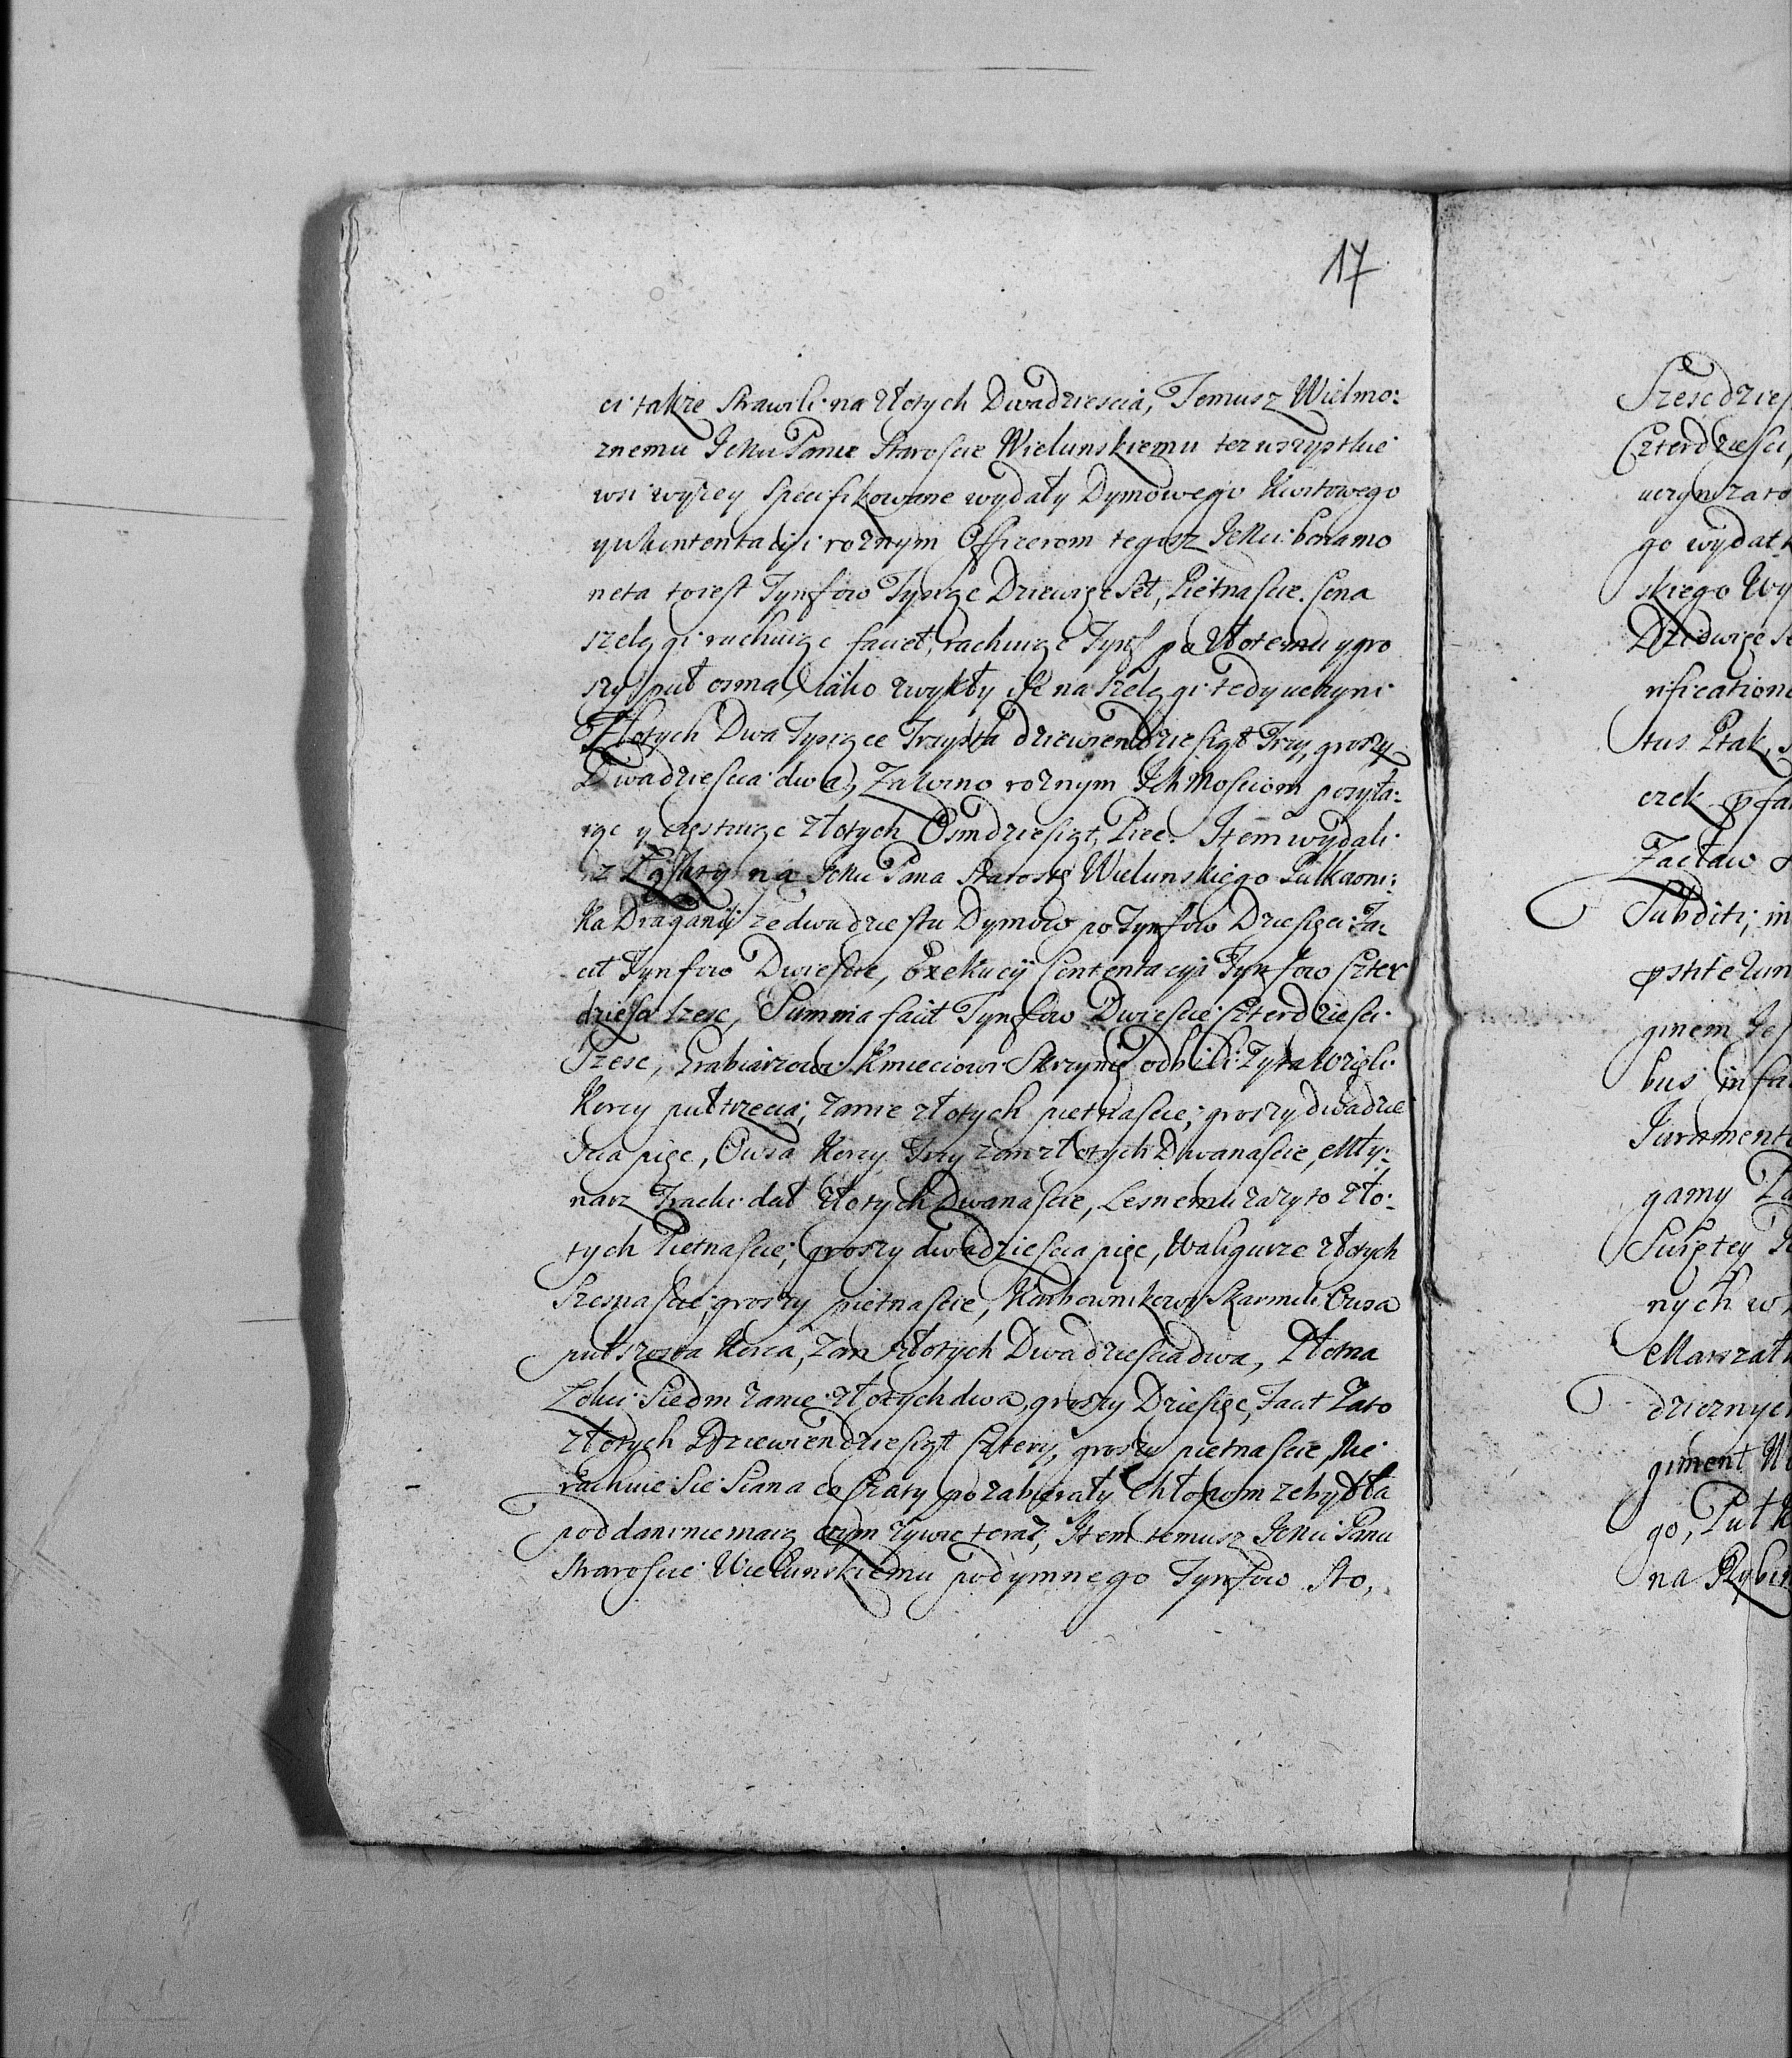 17
ci takze strawili na złotych Dwadziescia, Temusz Wielmo:
znemu Jchu Panu Staroscie Wielunskiemu tez wszystkie
wsi wyzey specifikowane wydały Dymowego Kwitowego
y ukontentacyi roznym Officerom tegosz Jchu bona mo
neta to iest Tynfow Tysiąc Dziewięc Set, Pietnascie. Cena
szelągi rachuiąc faciet, rachuiąc Tynf po złotemu y gro
szy puł osma, iako zwykły isc na szelągi tedy uczyni
Złotych Dwa Tysiące Trzysta dziewiendziesiąt Trzy, groszy
Dwadziescia dwa, Za wino roznym Ich Mosciom posyła:
iąc y częstuiąc złotych Osmdziesiąt, Piec. Item wydali
z na Jchu Pana Starostę Wielunskiego Pułkowni:
ka Draganij ze dwudziestu Dymow po Tynfow Dziesięci Fa:
cit Tynfow Dwiescie, Exekucij Contentacyi Tynfow Czter
dziesci szesc, Summa facit Tynfow Dwiescie Czterdziesci
Szesc, Grabiarzowi Kmieciowi Skrzynię odbili Zyta wzięli
Korcy puł trzecia, zanie złotych pietnascie, groszy dwadzie
scia pięc, Owsa Korcy Trzy zan złotych Dwanascie, Mły:
narz Tracki dał złotych Dwanascie, Lesnemu zazyto zło:
tych Pietnascie, groszy dwadziescia pięc, Waligurze złotych
Szesnascie, groszy pietnascie, Karbownikowi Skarmili Owsa
puł szosta Korca, zan złotych Dwadziescia dwa, Płotna
Łokci Siedm zanie złotych dwa, groszy Dziesięc, Facit Zato
złotych Dziewiendziesiąt Cztery, groszy pietnascie, Nie
rachuie sie Siana co Czaty pozabierały Chłopom ze bydła
poddani nie maią czym zywic teraz, Item temusz Jchu Panu
Staroscie Wielunskiemu podymnego Tynfow Sto,
Szescdzies
Czterdziesci,
uczyni zato
go wydat
skiego Wy
Dziewięc s
rificatione
tus Ptak, s
czek
Zacław
Subditi, in
ginem Jes
bus infa
Jurament
gamy
Swiętey
nych w
Marszałk
dzieznych
giment
go, Puł
na Rybi